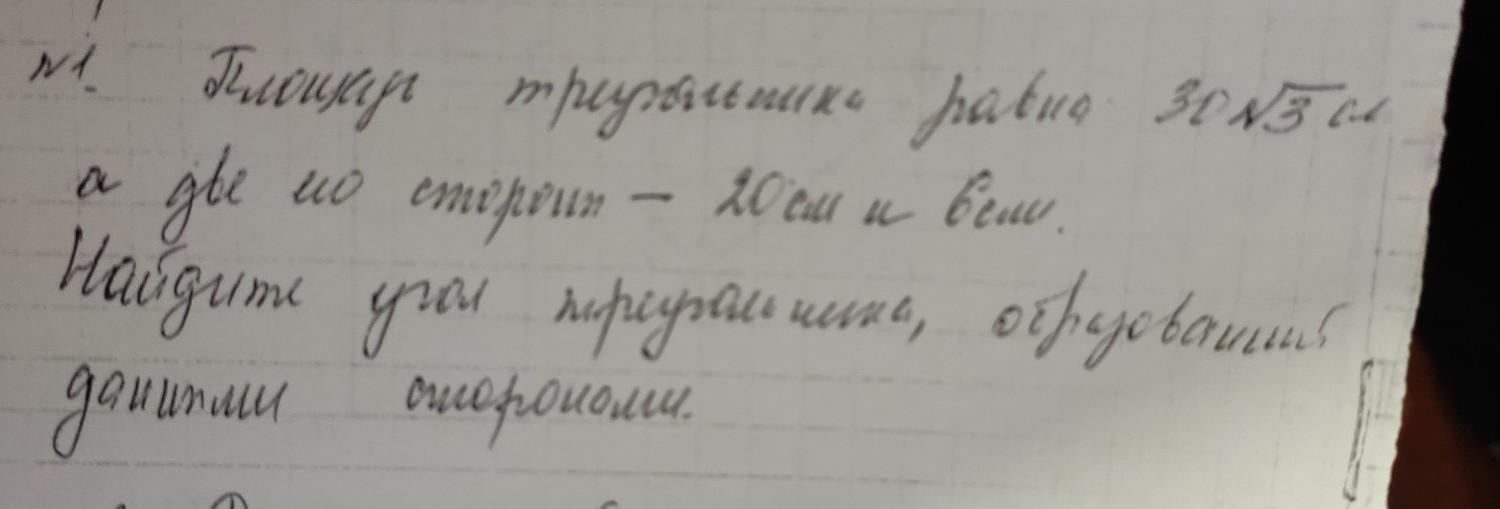 №1. Площадь треугольника равна 30√3 см
а две его стороны – 20 см и 6 см.
Найдите угол треугольника, образованный
данными сторонами.